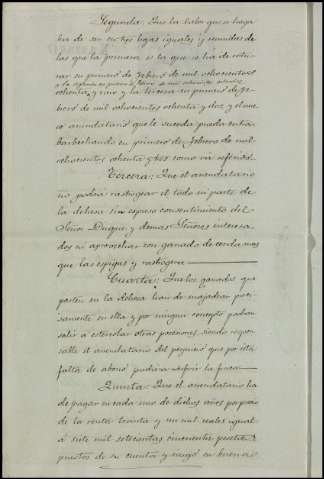 Segunda: Que la labor que se haga
ha de ser en tres hojas iguales y comunes de
las que la primera es la que se ha de
en primero de Febrero de mil ochocientos
y la segunda en primero de Febrero de mil ochocientos ochenta
ochenta y uno y la tercera en primero de Fe-
brero de mil ochocientos ochenta y dos, y el nue-
vo arrendatario que le suceda pueda entrar
barbechando en primero de Febrero de mil
ochocientos ochenta y tres como va referido.
Tercera: Que el arrendatario
no podrá rastrogear el todo ni parte de
la dehesa sin espreso consentimiento del
Señor Duque y demas Señores interesa-
dos ni aprovechar con ganado de cerda mas
que las espigas y rastrogera
Cuarta: Que los ganados que
pasten en la dehesa han de majadear preci-
samente en ella y por ningun concepto podran
salir a estercolar otras posesiones, siendo respon-
sable el arrendatario del perjuicio que por esta
falta de abono pudiera sufrir la finca
Quinta: Que el arrendatario ha
de pagar en cada uno de dichos años por precio
de la renta treinta y un mil reales igual
á siete mil setecientas cincuenta pesetas
puestas de su cuenta y riesgo en buenas